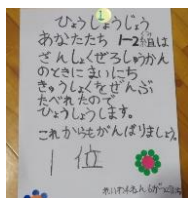 ひょうしょうじょう
あなたたち 1-2組は
ざんしょくぜろしゅうかん
のときにまいにち
きゅうしょくをぜんぶ
たべれたので
ひょうしょうします。
これからもがんばりましょう。
1位